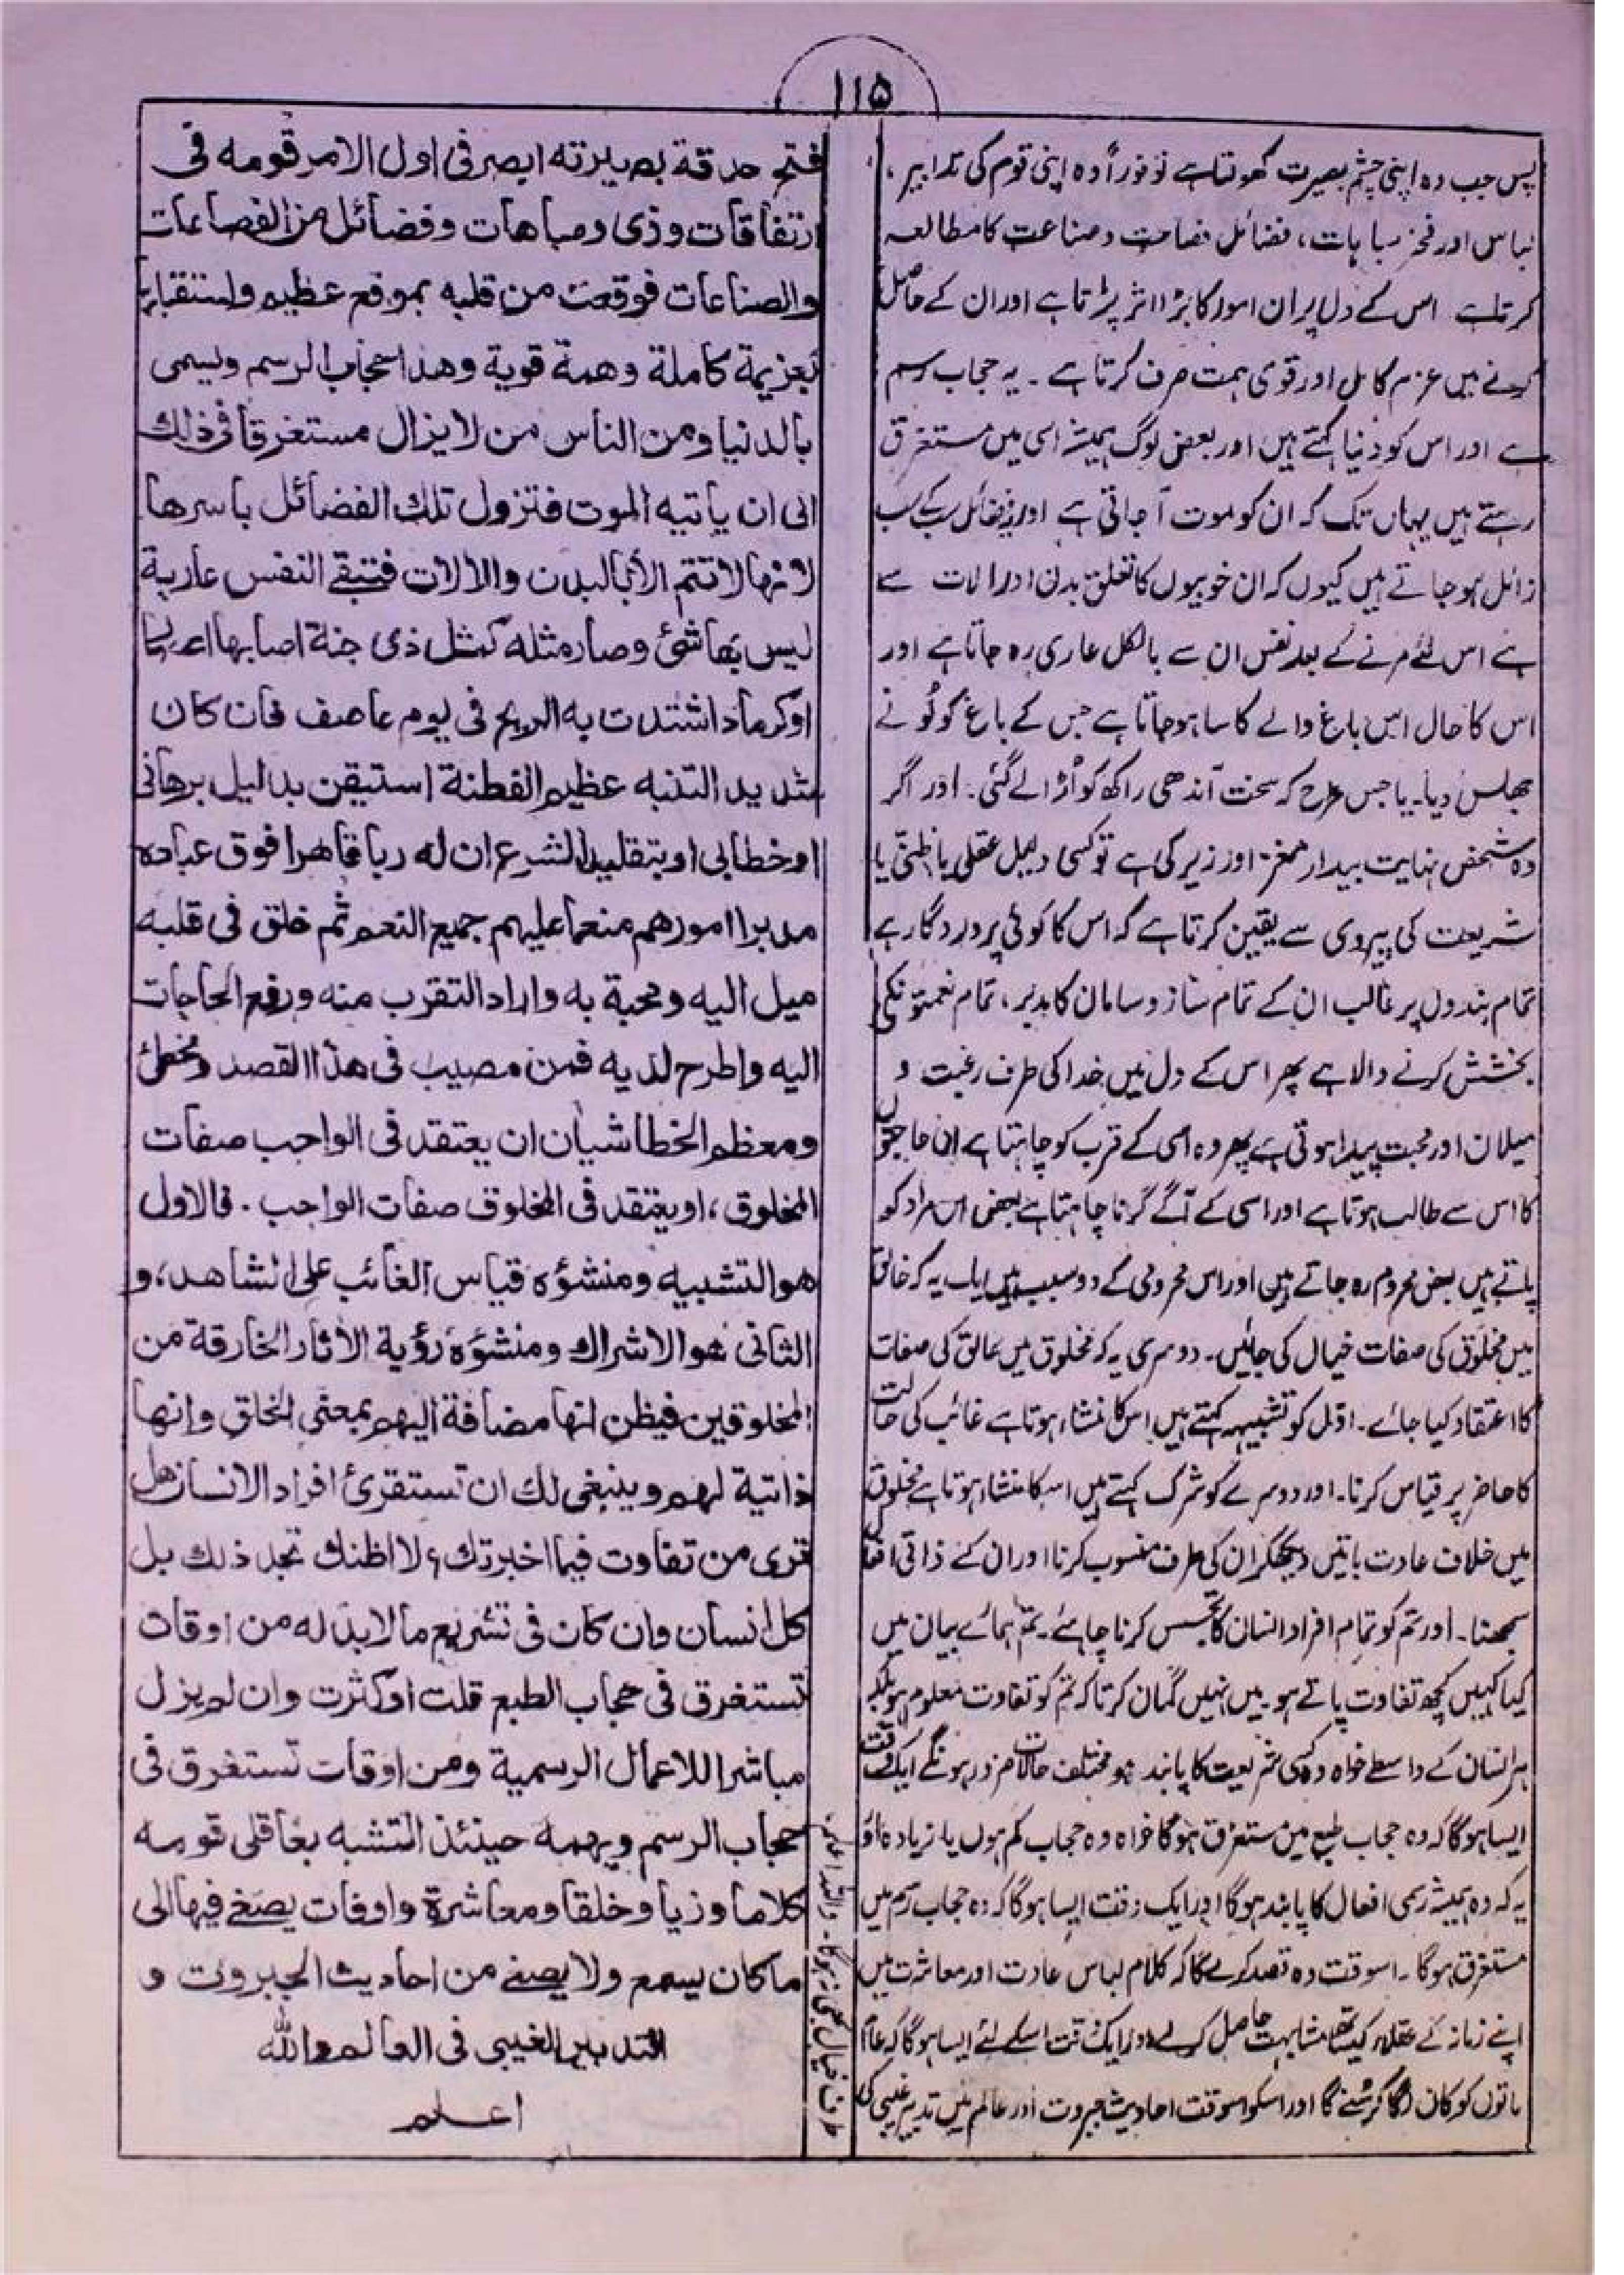 ۱۱۵
پس جب وہ اپنی چشم بصیرت کھولتا ہے تو فوراً وہ اپنی قوم کی تدابیر،
لباس اور فخر مباہات، فضائل فصاحت و صناعت کا مطالعہ
کرتا ہے اس کے دل پر ان امور کا بڑا اثر پڑتا ہے اور ان کے حاصل
کرنے میں عزم کامل اور قوی ہمت صرف کرتا ہے۔ یہ حجاب رسم
ہے اور اس کو دنیا کہتے ہیں اور بعض لوگ ہمیشہ اسی میں مستغرق
رہتے ہیں یہاں تک کہ ان کو موت آجاتی ہے اور یہ فضائل سب کے سب
زائل ہو جاتے ہیں کیوں کہ ان خوبیوں کا تعلق بدن اور الات سے
ہے اس لئے مرنے کے بعد نفس ان سے بالکل عاری رہ جاتا ہے اور
اس کا حال اس باغ والے کا سا ہو جاتا ہے جس کے باغ کو لُو نے
جھلس دیا۔ یا جس طرح کہ سخت آندھی راکھ کو اُڑا لے گئی۔ اور اگر
وہ شخص نہایت بیدار مغز اور زیرکی ہے تو کسی دلیل عقلی یا ظنی یا
شریعت کی پیروی سے یقین کرتا ہے کہ اس کا کوئی پروردگار ہے
تمام بندوں پر غالب ان کے تمام ساز و سامان کا مدبر، تمام نعمتونکی
بخشش کرنے والا ہے پھر اس کے دل میں خدا کی طرف رغبت و
میلان اور محبت پیدا ہوتی ہے پھر وہ اسی کے قرب کو چاہتا ہے ان حاجتوں
کا اس سے طالب ہوتا ہے اور اسی کے آگے گرنا چاہتا ہے بعض اس مراد کو
پاتے ہیں بعض محروم رہ جاتے ہیں اور اس محرومی کے دو سبب ہیں ایک یہ کہ خالق
میں مخلوق کی صفات خیال کی جائیں۔ دوسری یہ کہ مخلوق میں خالق کی صفات
کا اعتقاد کیا جائے۔ اوّل کو تشبیہہ کہتے ہیں اس کا منشاء ہوتا ہے غائب کی حالت
کا حاضر پر قیاس کرنا۔ اور دوسرے کو شرک کہتے ہیں اسکا منشاء ہوتا ہے مخلوق
میں خلاف عادت باتیں دیکھکر ان کی طرف منسوب کرنا اور ان کے ذاتی افعال
سمجھنا۔ اور تم کو تمام افراد انسان کا تجسس کرنا چاہئے۔ تم ہمارے بیان میں
کیا کہیں کچھ تفاوت پاتے ہو۔ میں نہیں گمان کرتا کہ تم کو تفاوت معلوم ہو بلکہ
ہر انسان کے واسطے خواہ وہ کسی شریعت کا پابند ہو مختلف حالات ضرور ہونگے ایک وقت
ایسا ہوگا کہ وہ حجاب طبع میں مستغرق ہوگا خواہ وہ حجاب کم ہوں یا زیادہ اور
یہ کہ وہ ہمیشہ رسمی افعال کا پابند ہوگا اور ایک وقت ایسا ہوگا کہ وہ حجاب رسم میں
مستغرق ہوگا۔ اسوقت وہ قصد کرے گا کہ کلام لباس عادت اور معاشرت میں
اپنے زمانہ کے عقلاء کیساتھ مشابہت حاصل کرے اور ایک وقت اسکے لئے ایسا ہوگا کہ
باتوں کو کان لگا کر سنے گا اور اسکو اسوقت احادیث جبروت اور عالم میں تدبیر غیبی کی
طرف خیال بھی نہ ہوگا۔ واللہ اعلم۔
فتح حدقة بصيرته ابصر في اول الامر قومه في
ارتفاقات وذي ومباهات وفضائل من الفصاعات
والصناعات فوقعت من قلبه بموقع عظيم واستقبلها
بعزيمة كاملة وهمة قوية وهذا حجاب الرسم ويسمى
بالدنيا ومن الناس من لا يزال مستغرقا في ذلك
الى ان ياتيه الموت فتزول تلك الفضائل باسرها
لانها لا تتم الا بالبدن والالات فتبقى النفس عارية
ليس بها شئ وصار مثله كمثل ذي جنة اصابها اعصار
اوكرماد اشتدت به الريح في يوم عاصف فان كان
شديد التنبه عظيم الفطنة استيقن بدليل برهاني
او خطابي او بتقليد الشرع ان له ربا قاهرا فوق عباده
مدبرا امورهم منعما عليهم جميع النعم ثم خلق في قلبه
ميل اليه ومحبة به واراد التقرب منه ورفع الحاجات
اليه واطرح لديه فمن مصيب في هذا القصد ومخطئ
ومعظم الخطا شيان ان يعتقد في الواجب صفات
المخلوق، او يعتقد في المخلوق صفات الواجب. فالاول
هو التشبيه ومنشؤه قياس الغائب على الشاهد، و
الثاني هو الاشراك ومنشؤه رؤية الاثار الخارقة من
المخلوقين فيظن انها مضافة اليهم بمعنى الخلق وانها
ذاتية لهم وينبغي لك ان تستقرئ افراد الانسان هل
ترى من تفاوت فيما اخبرتك، لا اظنك تجد ذلك بل
كل انسان وان كان في تشريع ما لا بد له من اوقات
تستغرق في حجاب الطبع قلت او كثرت وان لم يزل
مباشرا للاعمال الرسمية ومن اوقات تستغرق في
حجاب الرسم ويهمه حينئذ التشبه بعاقلي قومه
كلاما وزيا وخلقا ومعاشرة واوقات يصغي فيها الى
ما كان يسمع ولا يصغي من احاديث الجبروت و
التدبير الغيبي في العالم والله
اعلم